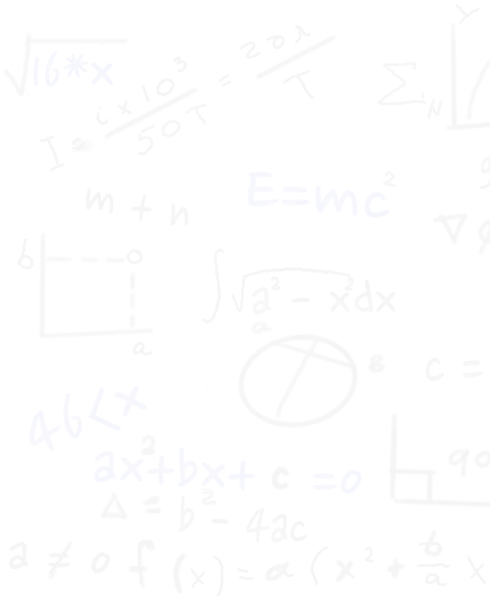 √16*x
I = i x 10³ / 50T = 20λ / T
Σ N
Y
m + n
E=mc²
∇ φ
b
o
a
∫ √a² - x² dx
a
B
c =
46<x
ax²+bx+c=0
90
Δ = b² - 4ac
a ≠ 0 f(x) = a(x² + b/a x